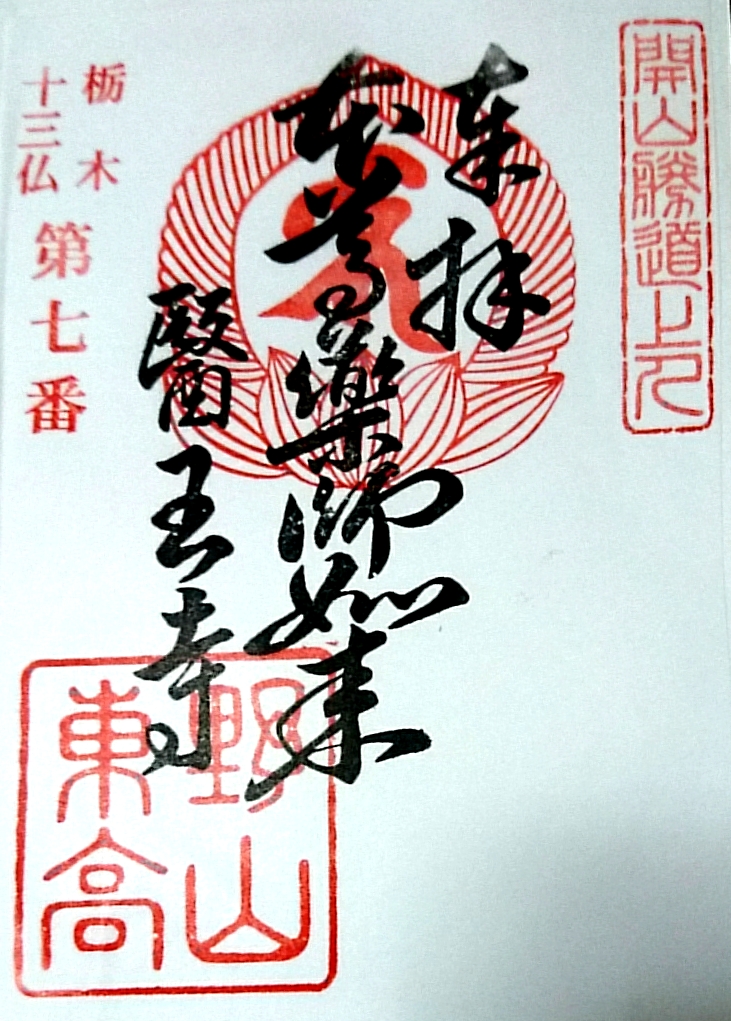 開山勝道上人
奉拝
本尊藥師如来
醫王寺
栃木
十三仏
第七番
東高
野山